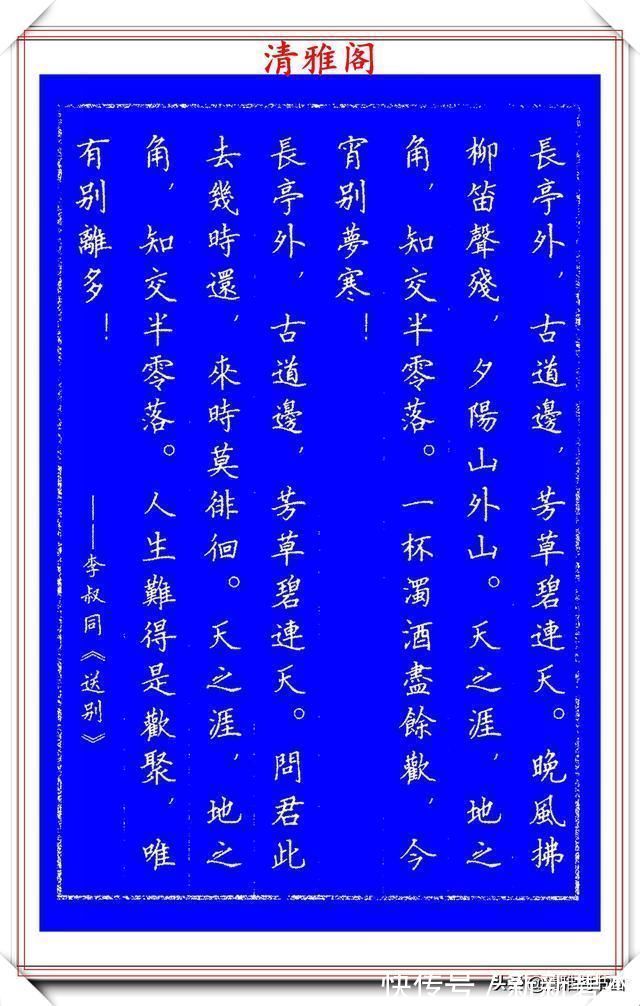 清雅阁
長亭外，古道邊，芳草碧連天。晚風拂
柳笛聲殘，夕陽山外山。天之涯，地之
角，知交半零落。一杯濁酒盡餘歡，今
宵别夢寒！
長亭外，古道邊，芳草碧連天。問君此
去幾時還，來時莫徘徊。天之涯，地之
角，知交半零落。人生難得是歡聚，唯
有别離多！
——李叔同《送别》
快传号/